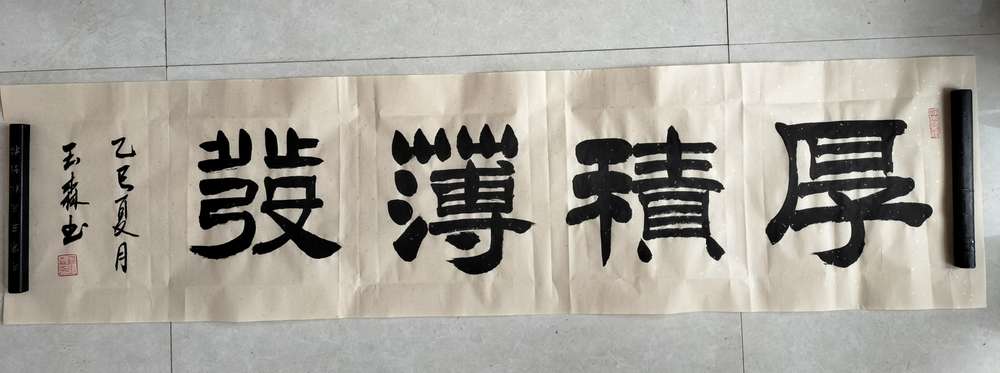 厚積薄發
乙巳夏月
玉森书